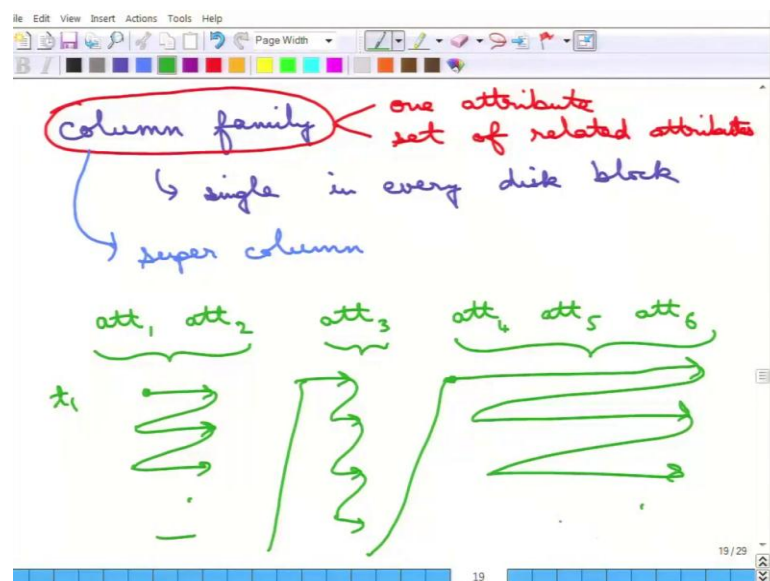 ile Edit View Insert Actions Tools Help
Page Width
B I
column family
one attribute
set of related attributes
single in every disk block
super column
att1 att2 att3 att4 att5 att6
t1
19/29
19